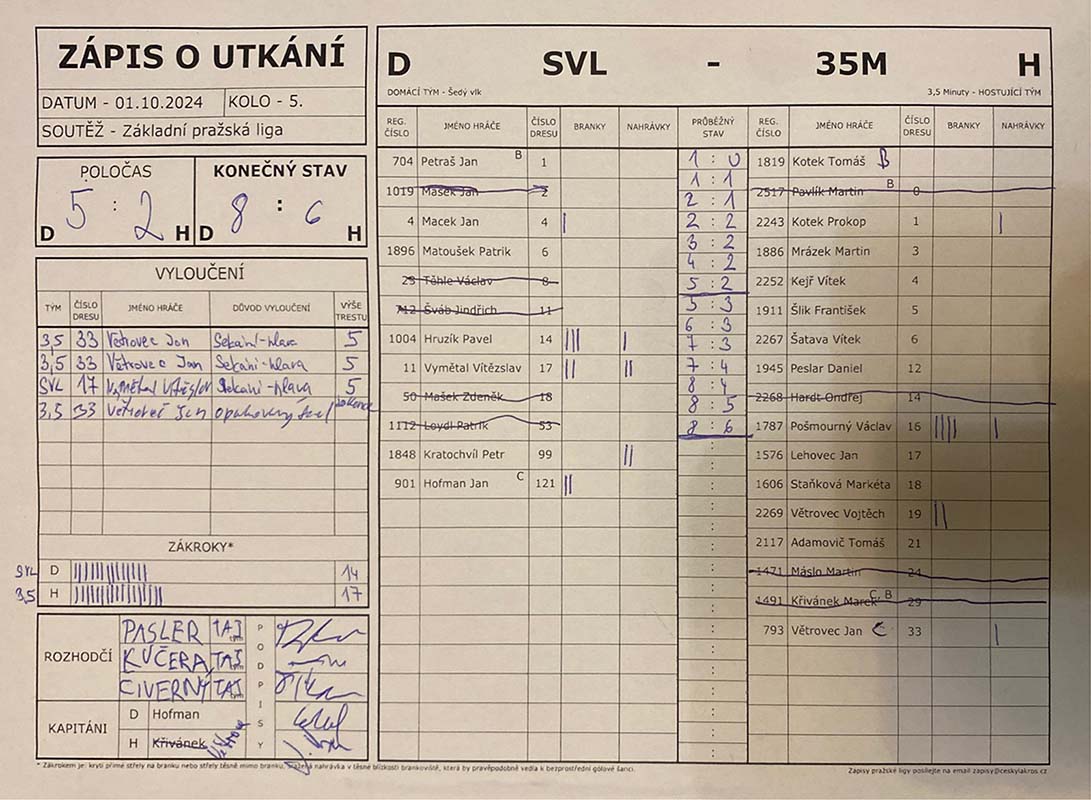 ZÁPIS O UTKÁNÍ
DATUM - 01.10.2024 KOLO - 5.
SOUTĚŽ - Základní pražská liga
POLOČAS KONEČNÝ STAV
5 : 2 8 : 6
D H D H
VYLOUČENÍ
TÝM ČÍSLO DRESU JMÉNO HRÁČE DŮVOD VYLOUČENÍ VÝŠE TRESTU
3,5 33 Větrovec Jan Sekání-hlava 5
3,5 33 Větrovec Jan Sekání-hlava 5
SVL 17 Vymětal Vítězslav Sekání-hlava 5
3,5 33 Větrovec Jan opakovaný
ZÁKROKY*
SVL D 14
3,5 H 17
ROZHODČÍ
PASLER TAJ
KUČERA TAJ
ČIVERNÝ TAJ
PODPISY
KAPITÁNI
D Hofman
H Křivánek
D SVL - 35M H
DOMÁCÍ TÝM - Šedý vlk 3,5 Minuty - HOSTUJÍCÍ TÝM
REG. ČÍSLO JMÉNO HRÁČE ČÍSLO DRESU BRANKY NAHRÁVKY PRŮBĚŽNÝ STAV REG. ČÍSLO JMÉNO HRÁČE ČÍSLO DRESU BRANKY NAHRÁVKY
704 Petraš Jan B 1
1019 Mašek Jan 2
4 Macek Jan 4 |
1896 Matoušek Patrik 6
25 Töhle Václav 8
712 Šváb Jindřich 11
1004 Hruzík Pavel 14 ||| |
11 Vymětal Vítězslav 17 || ||
50 Mašek Zdeněk 18
1112 Loydl Patrik 53
1848 Kratochvíl Petr 99 ||
901 Hofman Jan C 121 ||
1 : 0
1 : 1
2 : 1
2 : 2
3 : 2
4 : 2
5 : 2
5 : 3
6 : 3
7 : 3
7 : 4
8 : 4
8 : 5
8 : 6
1819 Kotek Tomáš B
2517 Pavlík Martin B 0
2243 Kotek Prokop 1 |
1886 Mrázek Martin 3
2252 Kejř Vítek 4
1911 Šlik František 5
2267 Šatava Vítek 6
1945 Peslar Daniel 12
2268 Hardt Ondřej 14
1787 Pošmourný Václav 16 |||| |
1576 Lehovec Jan 17
1606 Staňková Markéta 18
2269 Větrovec Vojtěch 19 ||
2117 Adamovič Tomáš 21
1471 Máslo Martin 24
1491 Křivánek Marek C, B 29
793 Větrovec Jan C 33 |
* Zákrokem je: krytí přímé střely na branku nebo střely těsně mimo branku, sražená nahrávka v těsné blízkosti brankoviště, která by pravěpodobně vedla k bezprostřední gólové šanci.
Zápisy pražské ligy posílejte na email zapisy@ceskylakros.cz